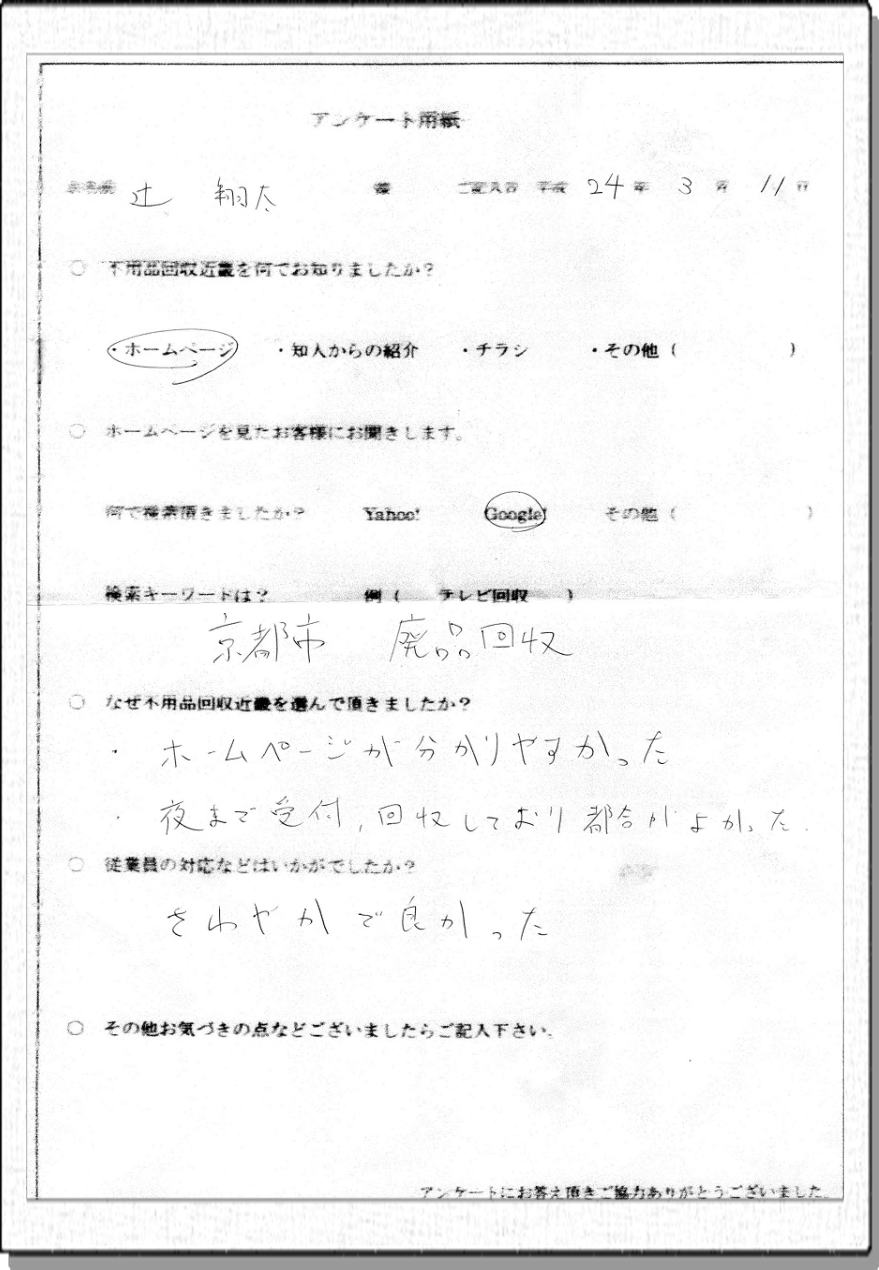 アンケート用紙
お名前 辻 翔太 様 ご記入日 平成 24 年 3 月 11 日
○ 不用品回収近畿を何でお知りましたか？
・ホームページ ・知人からの紹介 ・チラシ ・その他（ ）
○ ホームページを見たお客様にお聞きします。
何で検索頂きましたか？ Yahoo! Google! その他（ ）
検索キーワードは？ 例（ テレビ回収 ）
京都市 廃品回収
○ なぜ不用品回収近畿を選んで頂きましたか？
・ホームページが分かりやすかった
・夜まで受付，回収しており都合がよかった．
○ 従業員の対応などはいかがでしたか？
さわやかで良かった
○ その他お気づきの点などございましたらご記入下さい。
アンケートにお答え頂きご協力ありがとうございました。